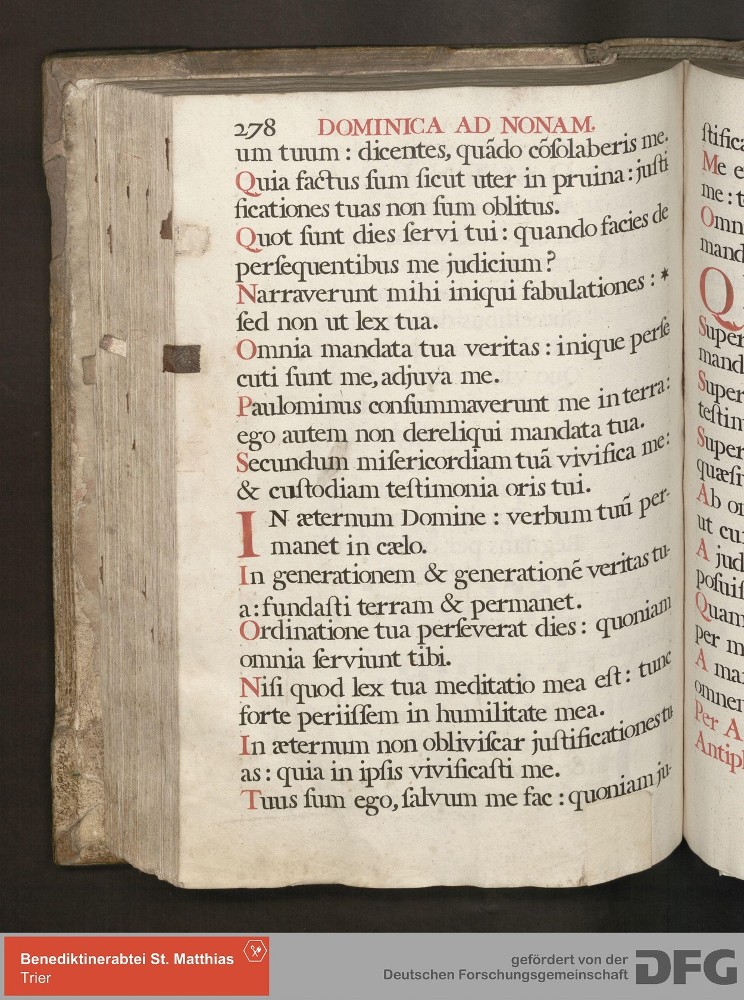 278 DOMINICA AD NONAM.
um tuum : dicentes, quãdo cõſolaberis me.
Quia factus ſum ſicut uter in pruina : juſti
ficationes tuas non ſum oblitus.
Quot ſunt dies ſervi tui : quando facies de
perſequentibus me judicium ?
Narraverunt mihi iniqui fabulationes : *
ſed non ut lex tua.
Omnia mandata tua veritas : inique perſe
cuti ſunt me, adjuva me.
Paulominus conſummaverunt me in terra :
ego autem non dereliqui mandata tua.
Secundum miſericordiam tuã vivifica me :
& cuſtodiam teſtimonia oris tui.
IN æternum Domine : verbum tuũ per-
manet in cælo.
In generationem & generationẽ veritas tu-
a : fundaſti terram & permanet.
Ordinatione tua perſeverat dies : quoniam
omnia ſerviunt tibi.
Niſi quod lex tua meditatio mea eſt : tunc
forte periiſſem in humilitate mea.
In æternum non obliviſcar juſtificationes tu
as : quia in ipſis vivificaſti me.
Tuus ſum ego, ſalvum me fac : quoniam ju-
ſtifica
Me e
me : t
Omn
mand
Q
Super
mand
Super
teſtim
Super
quæſi
Ab or
ut cu
A jud
poſuiſ
Quam
per m
A ma
omnem
Per A
Antiph
Benediktinerabtei St. Matthias
Trier
gefördert von der
Deutschen Forschungsgemeinschaft
DFG